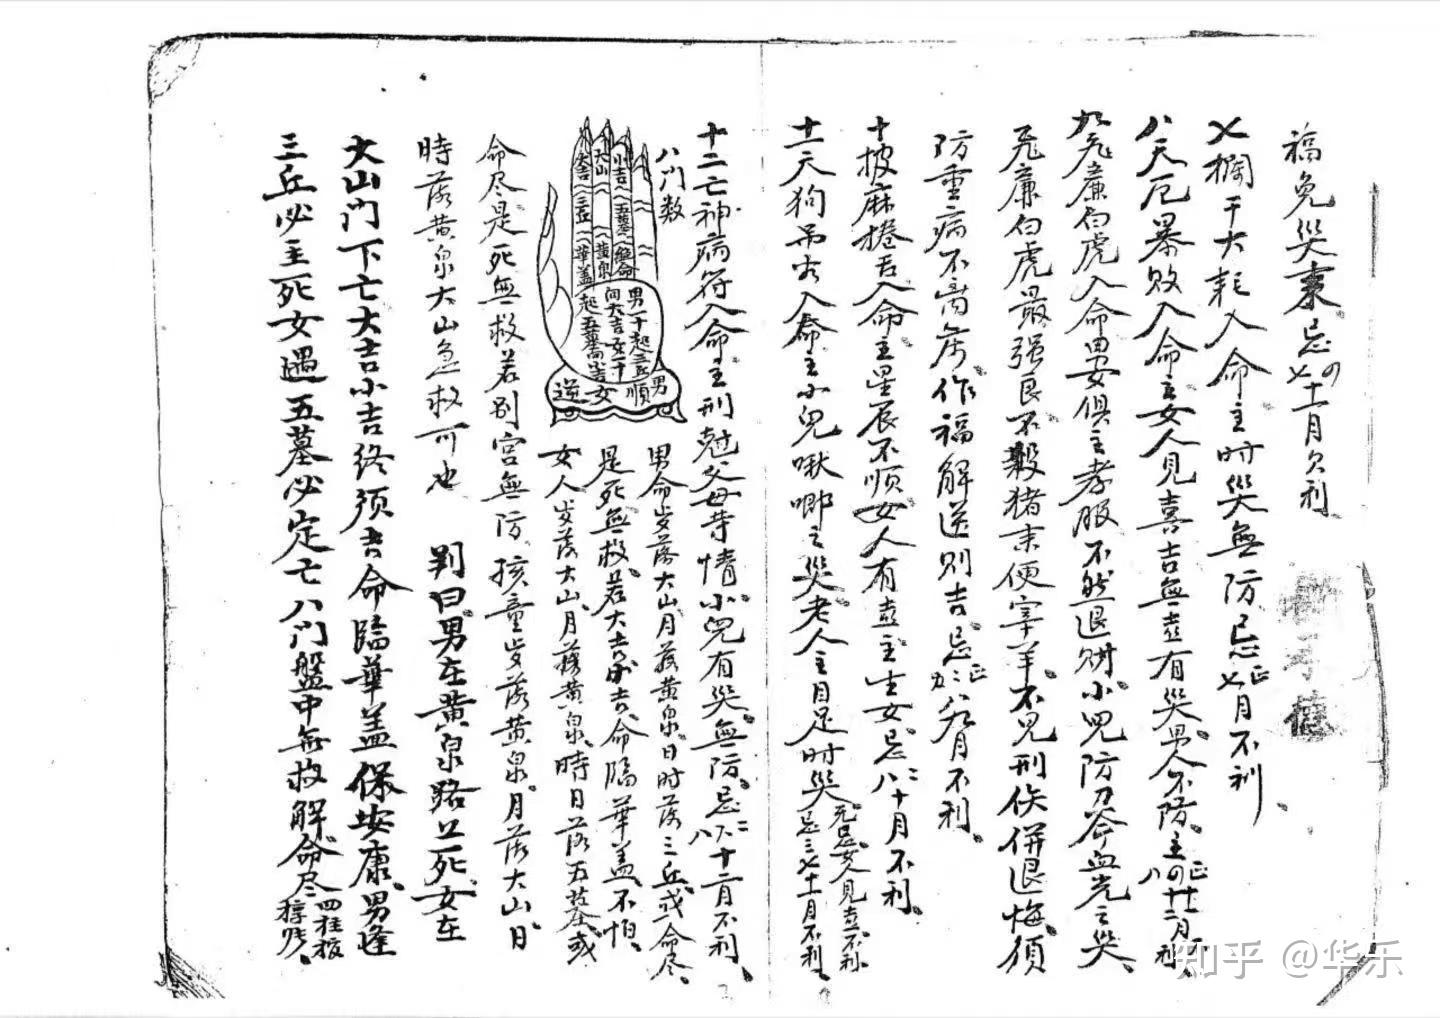 福免災秉忌四七十一月欠利
七欄干大耗入命主时災無防忌正七月不利、
八天厄暴败入命主女人見喜吉無喜有災男人不防、主
九飛廉白虎入命男女俱主孝服不然退财小兒防刀斧血光之災、
飛廉白虎最强良不殺猪来便宰羊、不見刑伤併退悔须
防重病不离床作福解送则吉忌正二八九月不利、
十披麻捲舌入命主星辰不順女人有喜主生女忌二八十月不利、
十一天狗吊客入命主小兒啾唧之災老人主目足时災
元忌女人見喜不利
忌三七十一月不利、
十二亡神病符入命主刑尅父母苛情小兒有災無防忌
十二月不利、
八门数
小吉 五墓 絕命
大山 黄泉
大吉 三丘 華盖
男一十起三丘
順男
女逆
男命歲落大山月落黄泉日时落三丘或命尽、
是死無救、若大吉小吉命临華盖不怕、
女人岁落大山月落黄泉時日落五墓或
命尽是死無救若别宫無防孩童岁落黄泉月落大山日
時落黄泉大山急救可也
判曰男在黄泉路上死女在
大山门下亡大吉小吉终须吉命臨華盖保安康男逢
三丘必主死女遇五墓必定亡八门盤中無救解命尽
知乎 @华乐